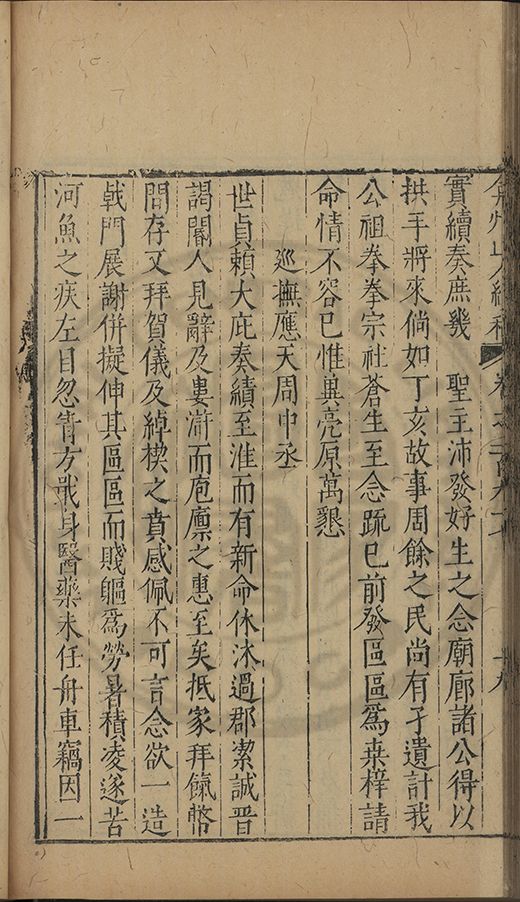 弇州山人續稿 卷之一百九十 十九
實續奏庶幾 聖主沛發好生之念廟廊諸公得以
拱手將來倘如丁亥故事周餘之民尚有孑遺計我
公祖拳拳宗社蒼生至念疏已前發區區爲桒梓請
命情不容已惟兾亮原萬懇
巡撫應天周中丞
世貞賴大庇奏績至淮而有新命休沐過郡潔誠晉
謁閽人見辭及婁滸而庖廪之惠至矣抵家拜餼幣
問存又拜賀儀及綽楔之賁感佩不可言念欲一造
戟門展謝併擬伸其區區而賤軀爲勞暑積凌遂苦
河魚之疾左目忽眚方戢身醫藥未任舟車竊因二